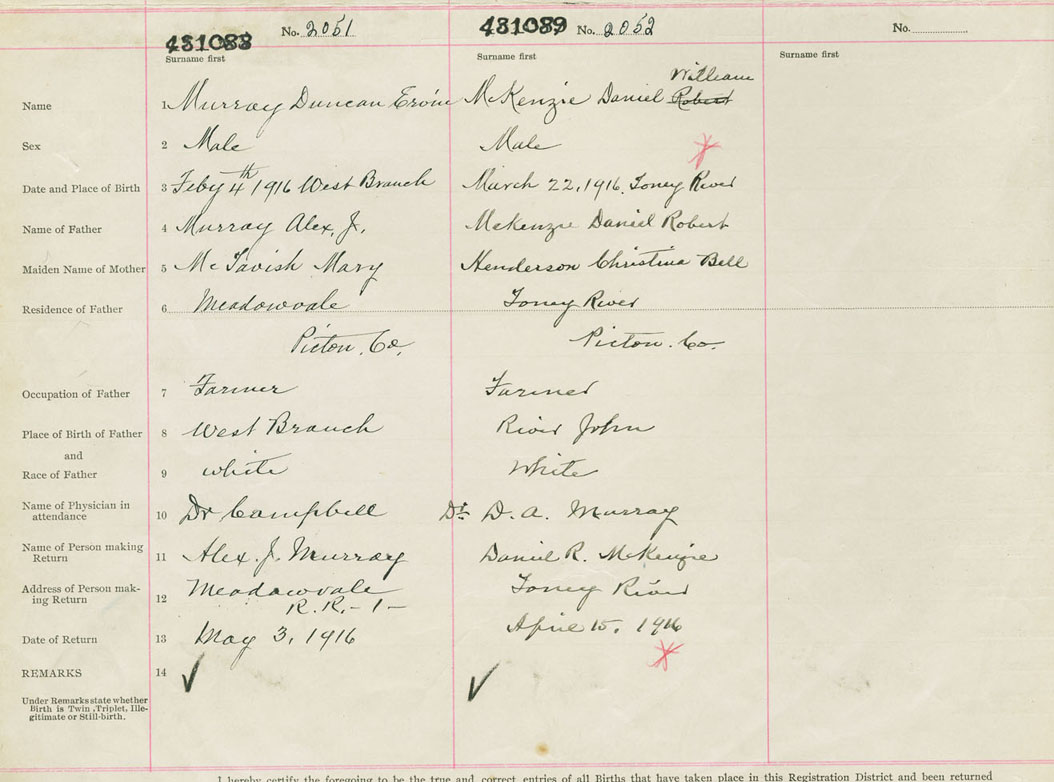 431088 No. 2051 431089 No. 2052 No.
Surname first Surname first Surname first
William
Name 1 Murray Duncan McKenzie Daniel Robert
Sex 2 Male Male
Date and Place of Birth 3 Feby 4th 1916 West Branch March 22, 1916. Toney River
Name of Father 4 Murray Alex. J. McKenzie Daniel Robert
Maiden Name of Mother 5 McTavish Mary Henderson Christina Bell
Residence of Father 6 Meadowvale Toney River
Pictou. Co. Pictou. Co.
Occupation of Father 7 Farmer Farmer
Place of Birth of Father 8 West Branch River John
and
Race of Father 9 white White
Name of Physician in
attendance 10 Dr Campbell Dr. D. A. Murray
Name of Person making
Return 11 Alex. J. Murray Daniel R. McKenzie
Address of Person mak-
ing Return 12 Meadowvale Toney River
R.R. - 1 -
Date of Return 13 May 3, 1916 April 15, 1916
REMARKS 14
Under Remarks state whether
Birth is Twin, Triplet, Ille-
gitimate or Still-birth.
I hereby certify the foregoing to be the true and correct entries of all Births that have taken place in this Registration District and been returned